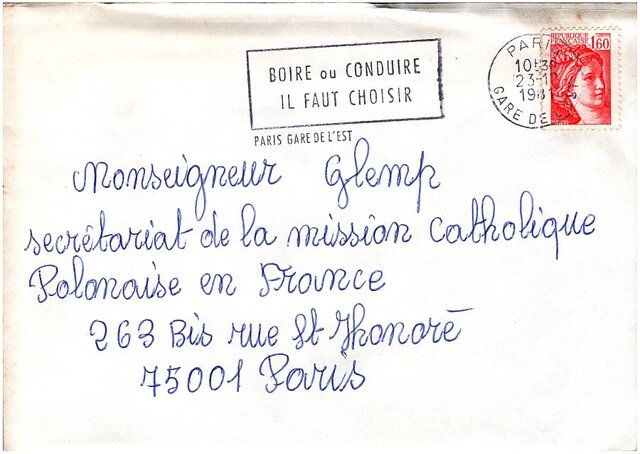 BOIRE ou CONDUIRE
IL FAUT CHOISIR
PARIS GARE DE L'EST
PARI
10H30
23-12
1981
GARE DE
REPUBLIQUE
FRANCAISE
1,60
Monseigneur Glemp
secrétariat de la mission catholique
Polonaise en France
263 Bis rue St Honoré
75001 Paris